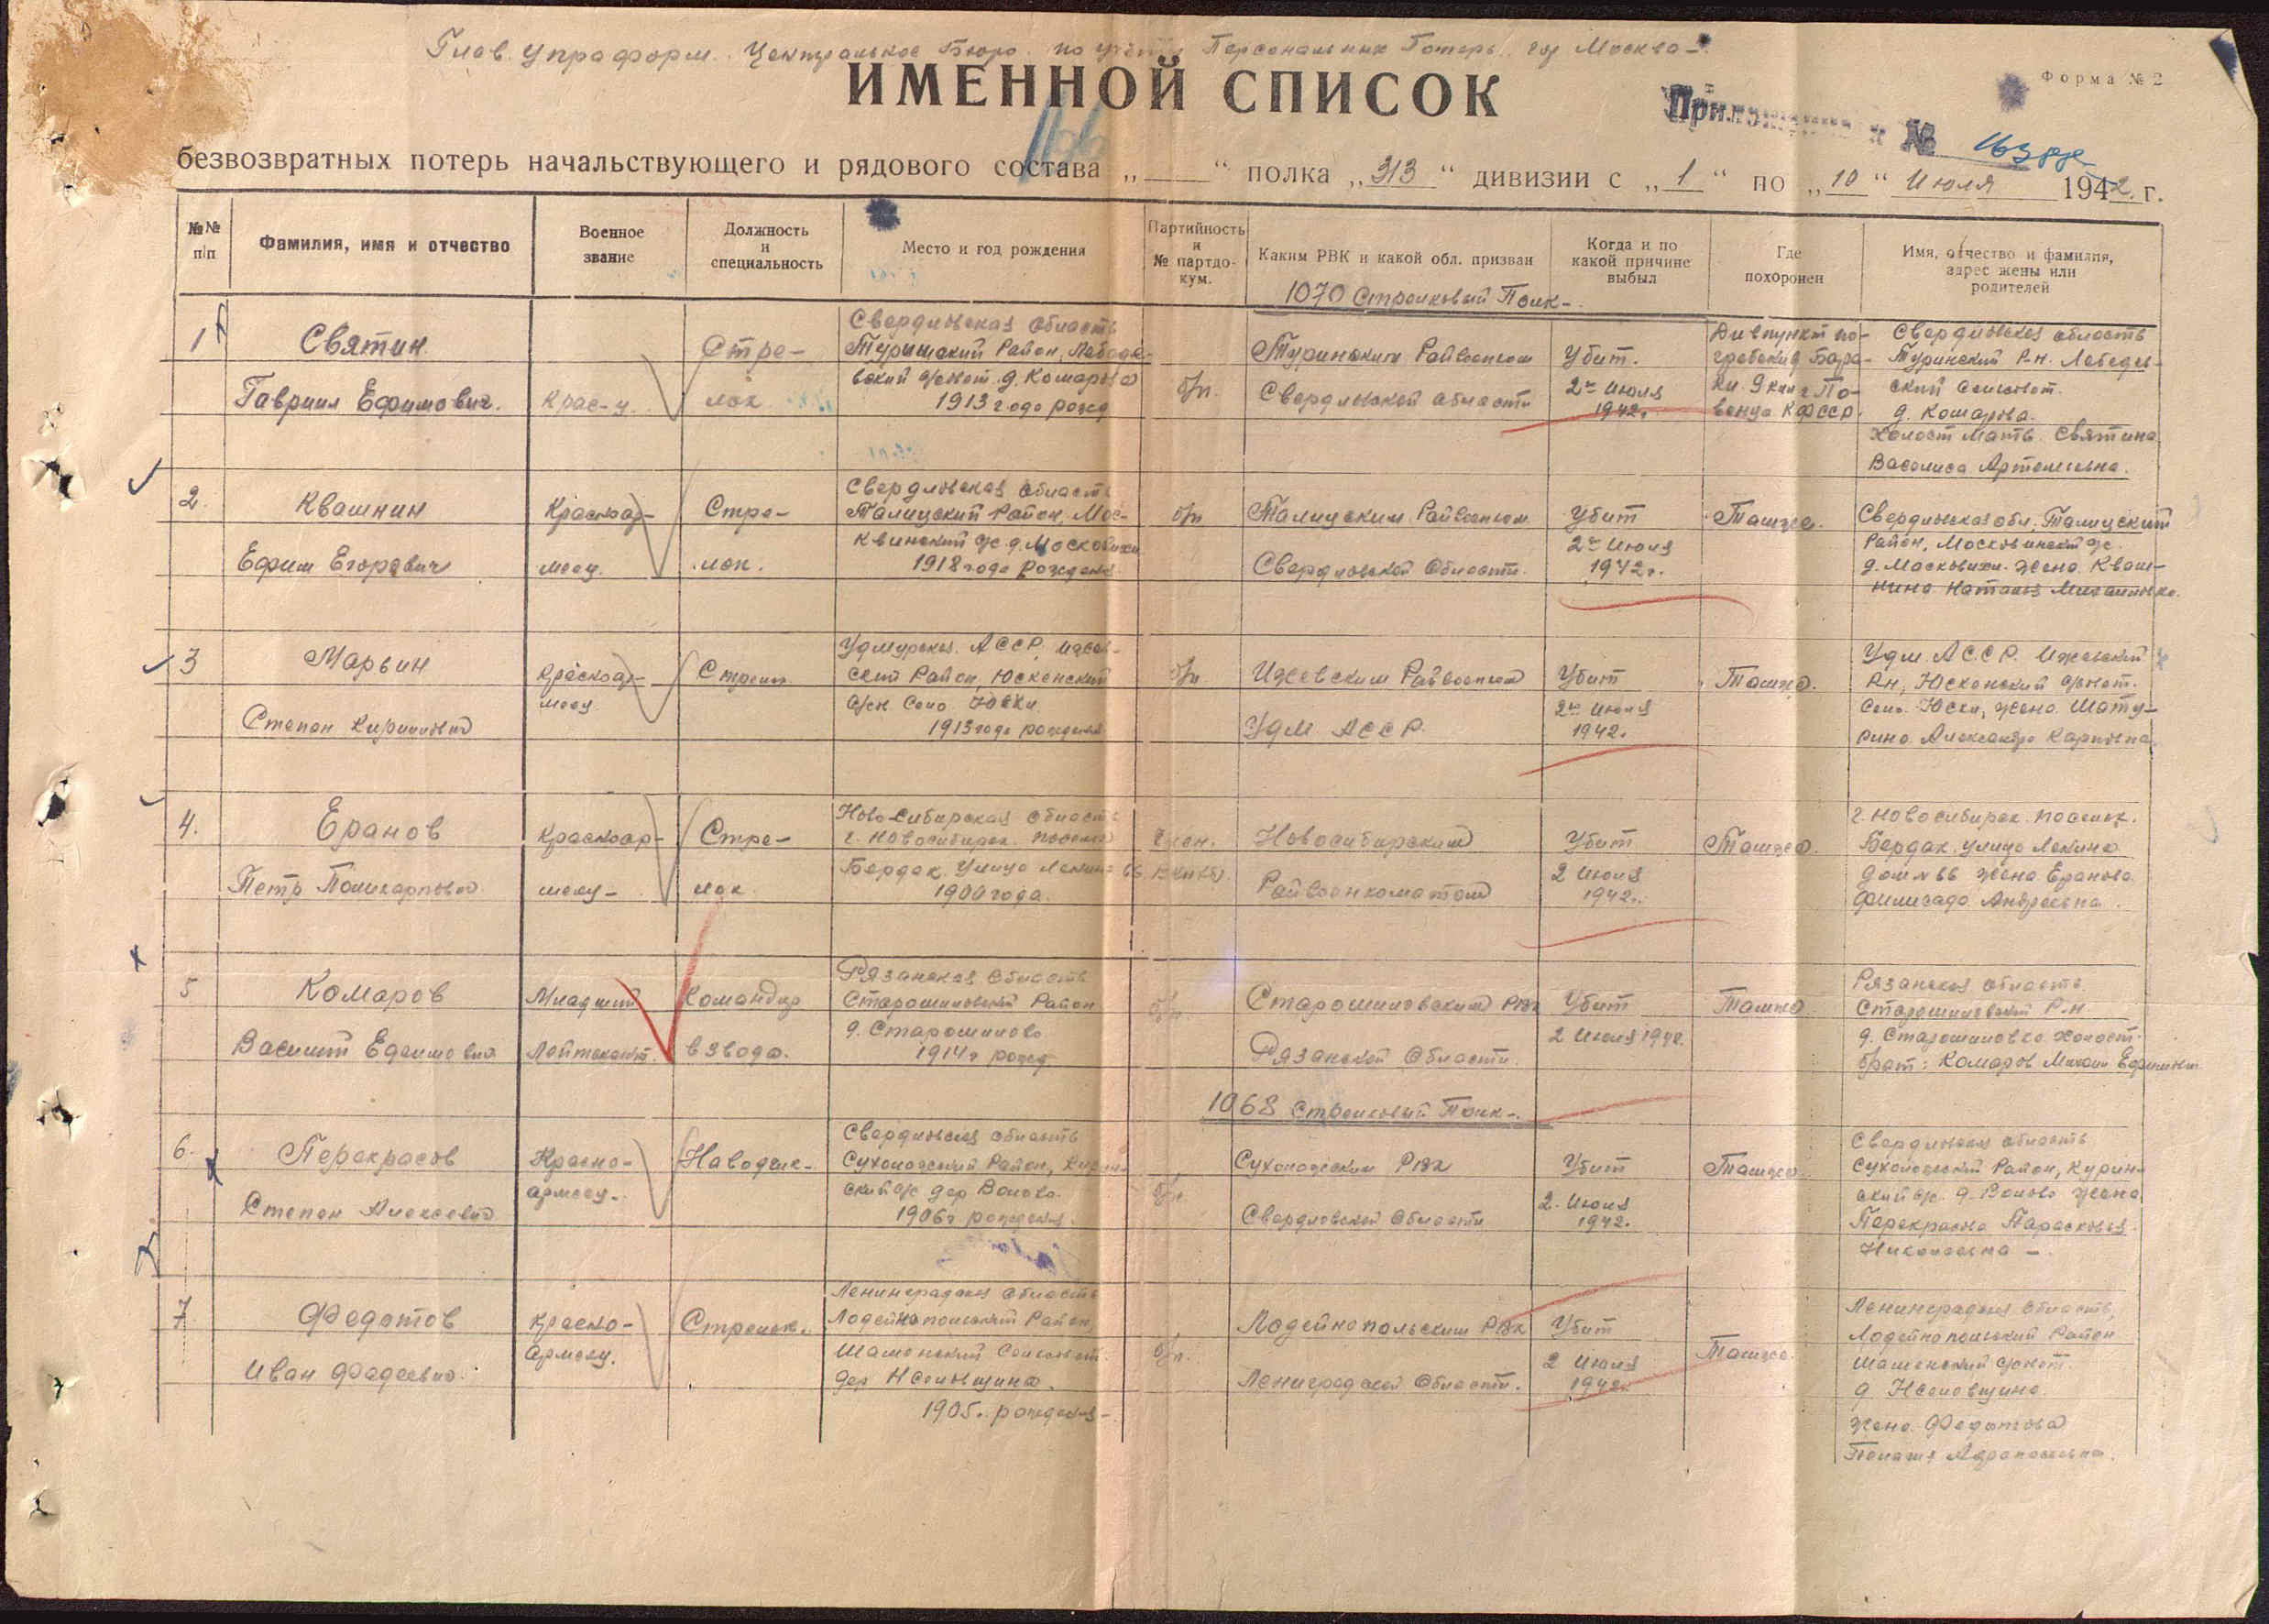 Глав. Упраформ. Центральное Бюро по учёту Персональных Потерь гор Москва –
ИМЕННОЙ СПИСОК
Форма № 2
Приложение к №
безвозвратных потерь начальствующего и рядового состава „ “ полка „313“ дивизии с „1“ по „10“ Июля 1942. г.
№№ п/п
Фамилия, имя и отчество
Военное звание
Должность и специальность
Место и год рождения
Партийность и № партдокум.
Каким РВК и какой обл. призван
Когда и по какой причине выбыл
Где похоронен
Имя, отчество и фамилия, адрес жены или родителей
1070 Стрелковый Полк –
1
Святин
Гавриил Ефимович.
Крас-ц
Стре-
лок
Свердловская область
Туринский Район, Лебеде-
вский с/совет д. Комарова
1913 года рожд
б/п.
Туринским Райвоенком
Свердловской области
Убит.
2го Июля
1942г.
гребский Бара-
ки 9 клм г. По-
венца КФССР.
Свердловская область
Туринский Р-н. Лебедев-
ский сельсовет.
д. Комарова.
холост мать Святина
Василиса Артемьевна.
2.
Квашнин
Ефим Егорович
Красноар-
меец.
Стре-
лок.
Свердловская область
Талицкий Район, Мос-
квинский с/с. д. Московских
1918 года рождения
б/п
Талицким Райвоенком
Свердловской Области.
Убит
2го Июля
1942г.
Также.
Свердловская обл. Талицкий
Район, Московинский с/с.
д. Московских. Жена Кваш-
нина Наталья Михайловна.
3
Марьин
Степан Кириллович
Красноар-
меец
Стрелок.
Удмурская АССР, Ижев-
ский Район, Юскенский
с/сн Село Юски
1913 года рождения
б/п.
Ижевским Райвоенком
Удм АССР.
Убит
2го Июля
1942г.
Также.
Удм. АССР. Ижевский
Р-н, Юскенский с/совет.
Село. Юски, жена Шату-
рина Александра Карповна.
4.
Еранов
Петр Поликарпович
Красноар-
меец –
Стре-
лок.
Ново-Сибирская область
г. Новосибирск поселок
Бердск. Улица Ленина 66
1900 года.
член.
ВКП(б).
Новосибирским
Райвоенкоматом
Убит
2 Июля
1942г.
Также.
г. Новосибирск поселк.
Бердск. улица Ленина
дом № 66 жена Еранова
Андреевна.
5
Комаров
Василий Ефимович
Младший
Лейтенант.
Командир
взвода.
Рязанская Область
Старошиловский Район
д. Старошилово
1914г рожд
б/п.
Старошиловским РВК
Рязанской Области.
Убит
2 Июля 1942.
Также
Рязанская область
Старошиловский Р-н.
д. Старошиловка холост.
брат: Комаров Михаил Ефимович
1068 Стрелковый Полк –
6.
Перекрасов
Степан Алексеевич
Красно-
армеец –
Наводчик –
Свердловская область
Сухоложский Район, Курин-
ский с/с дер Волово.
1906г рождения.
б/п.
Сухоложским РВК
Свердловской Области
Убит
2. Июля
1942г.
Также.
Свердловская область
Сухоложский Район, Курин-
ский с/с. д. Волово жена
Перекрасова Парасковья
Николаевна –
7.
Федотов
Иван Фадеевич.
Красно-
Армеец.
Стрелок.
Ленинградская Область
Лодейнопольский Район,
Шаменский Сельсовет.
дер
1905г. рождения –
б/п.
Лодейнопольским РВК
Ленинградской Области.
Убит
2 Июля
1942г.
Также.
Ленинградская Область,
Лодейнопольский Район
Шаменский с/совет.
д.
жена Федотова